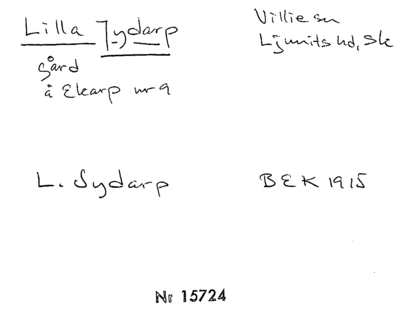 Lilla Tydarp
Villie sn
Ljunits hd, Sk
gård
å Ekarp nr 9
L. Sydarp
BEK 1915
Nr 15724